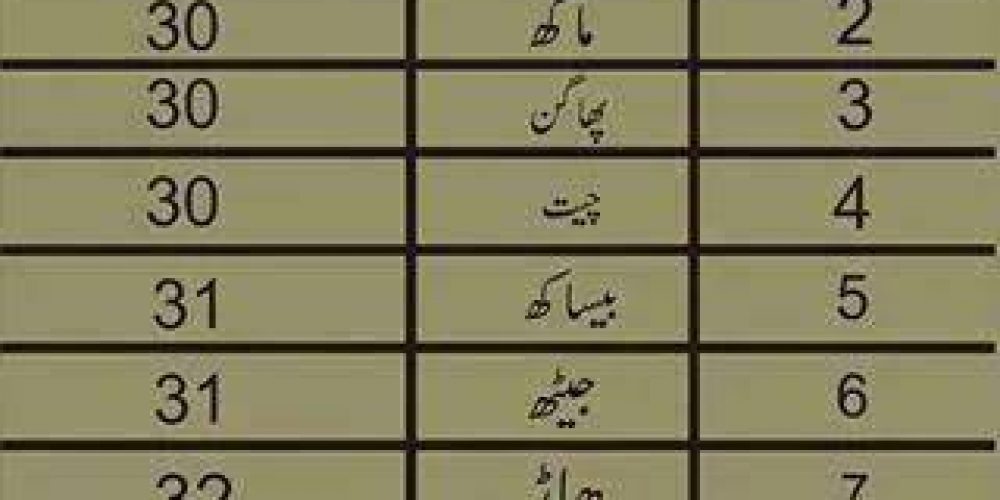 2 ماگھ 30
3 پھاگن 30
4 چیت 30
5 بیساکھ 31
6 جیٹھ 31
7 32